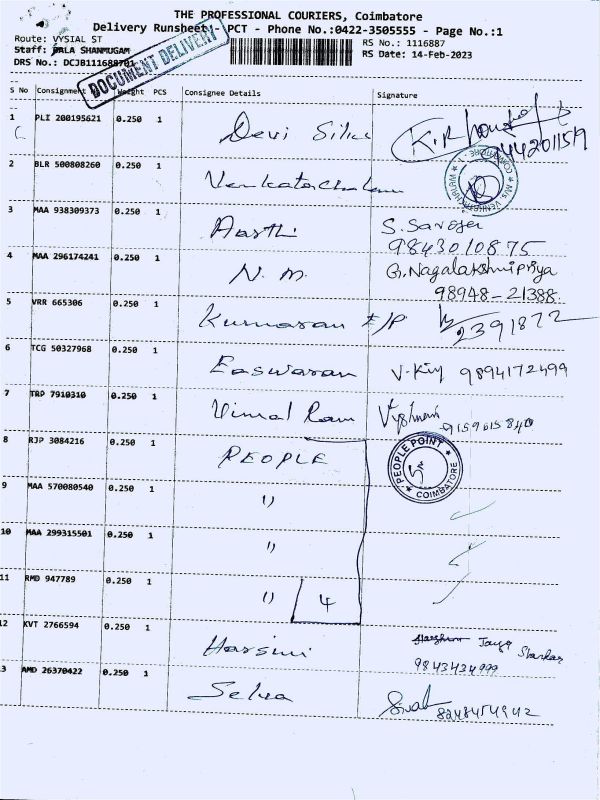 THE PROFESSIONAL COURIERS, Coimbatore
Delivery Runsheet - PCT - Phone No.:0422-3505555 - Page No.:1
Route: VYSIAL ST
RS No.: 1116887
Staff: BALA SHANMUGAM
RS Date: 14-Feb-2023
DRS No.: DCJB111688701
DOCUMENT DELIVERY
S No Consignment Weight PCS Consignee Details Signature
1 PLI 200195621 0.250 1 Devi Silks
2 BLR 500808260 0.250 1 Venkatachalam
COIMBATORE - 1
3 MAA 938309373 0.250 1 Aarthi S. Saroja
9843010875
4 MAA 296174241 0.250 1 N. M. G. Nagalakshmipriya
98948-21388
5 VRR 665306 0.250 1 Kumaran 2391872
6 TCG 50327968 0.250 1 Easwaran 9894172499
7 TRP 7910310 0.250 1 Vimal Ram
9159615840
8 RJP 3084216 0.250 1 PEOPLE
PEOPLE POINT
COIMBATORE
9 MAA 570080540 0.250 1 "
10 MAA 299315501 0.250 1 "
11 RMD 947789 0.250 1 " 4
12 KVT 2766594 0.250 1 Harsini
9843434999
13 AMD 26370422 0.250 1 Selva